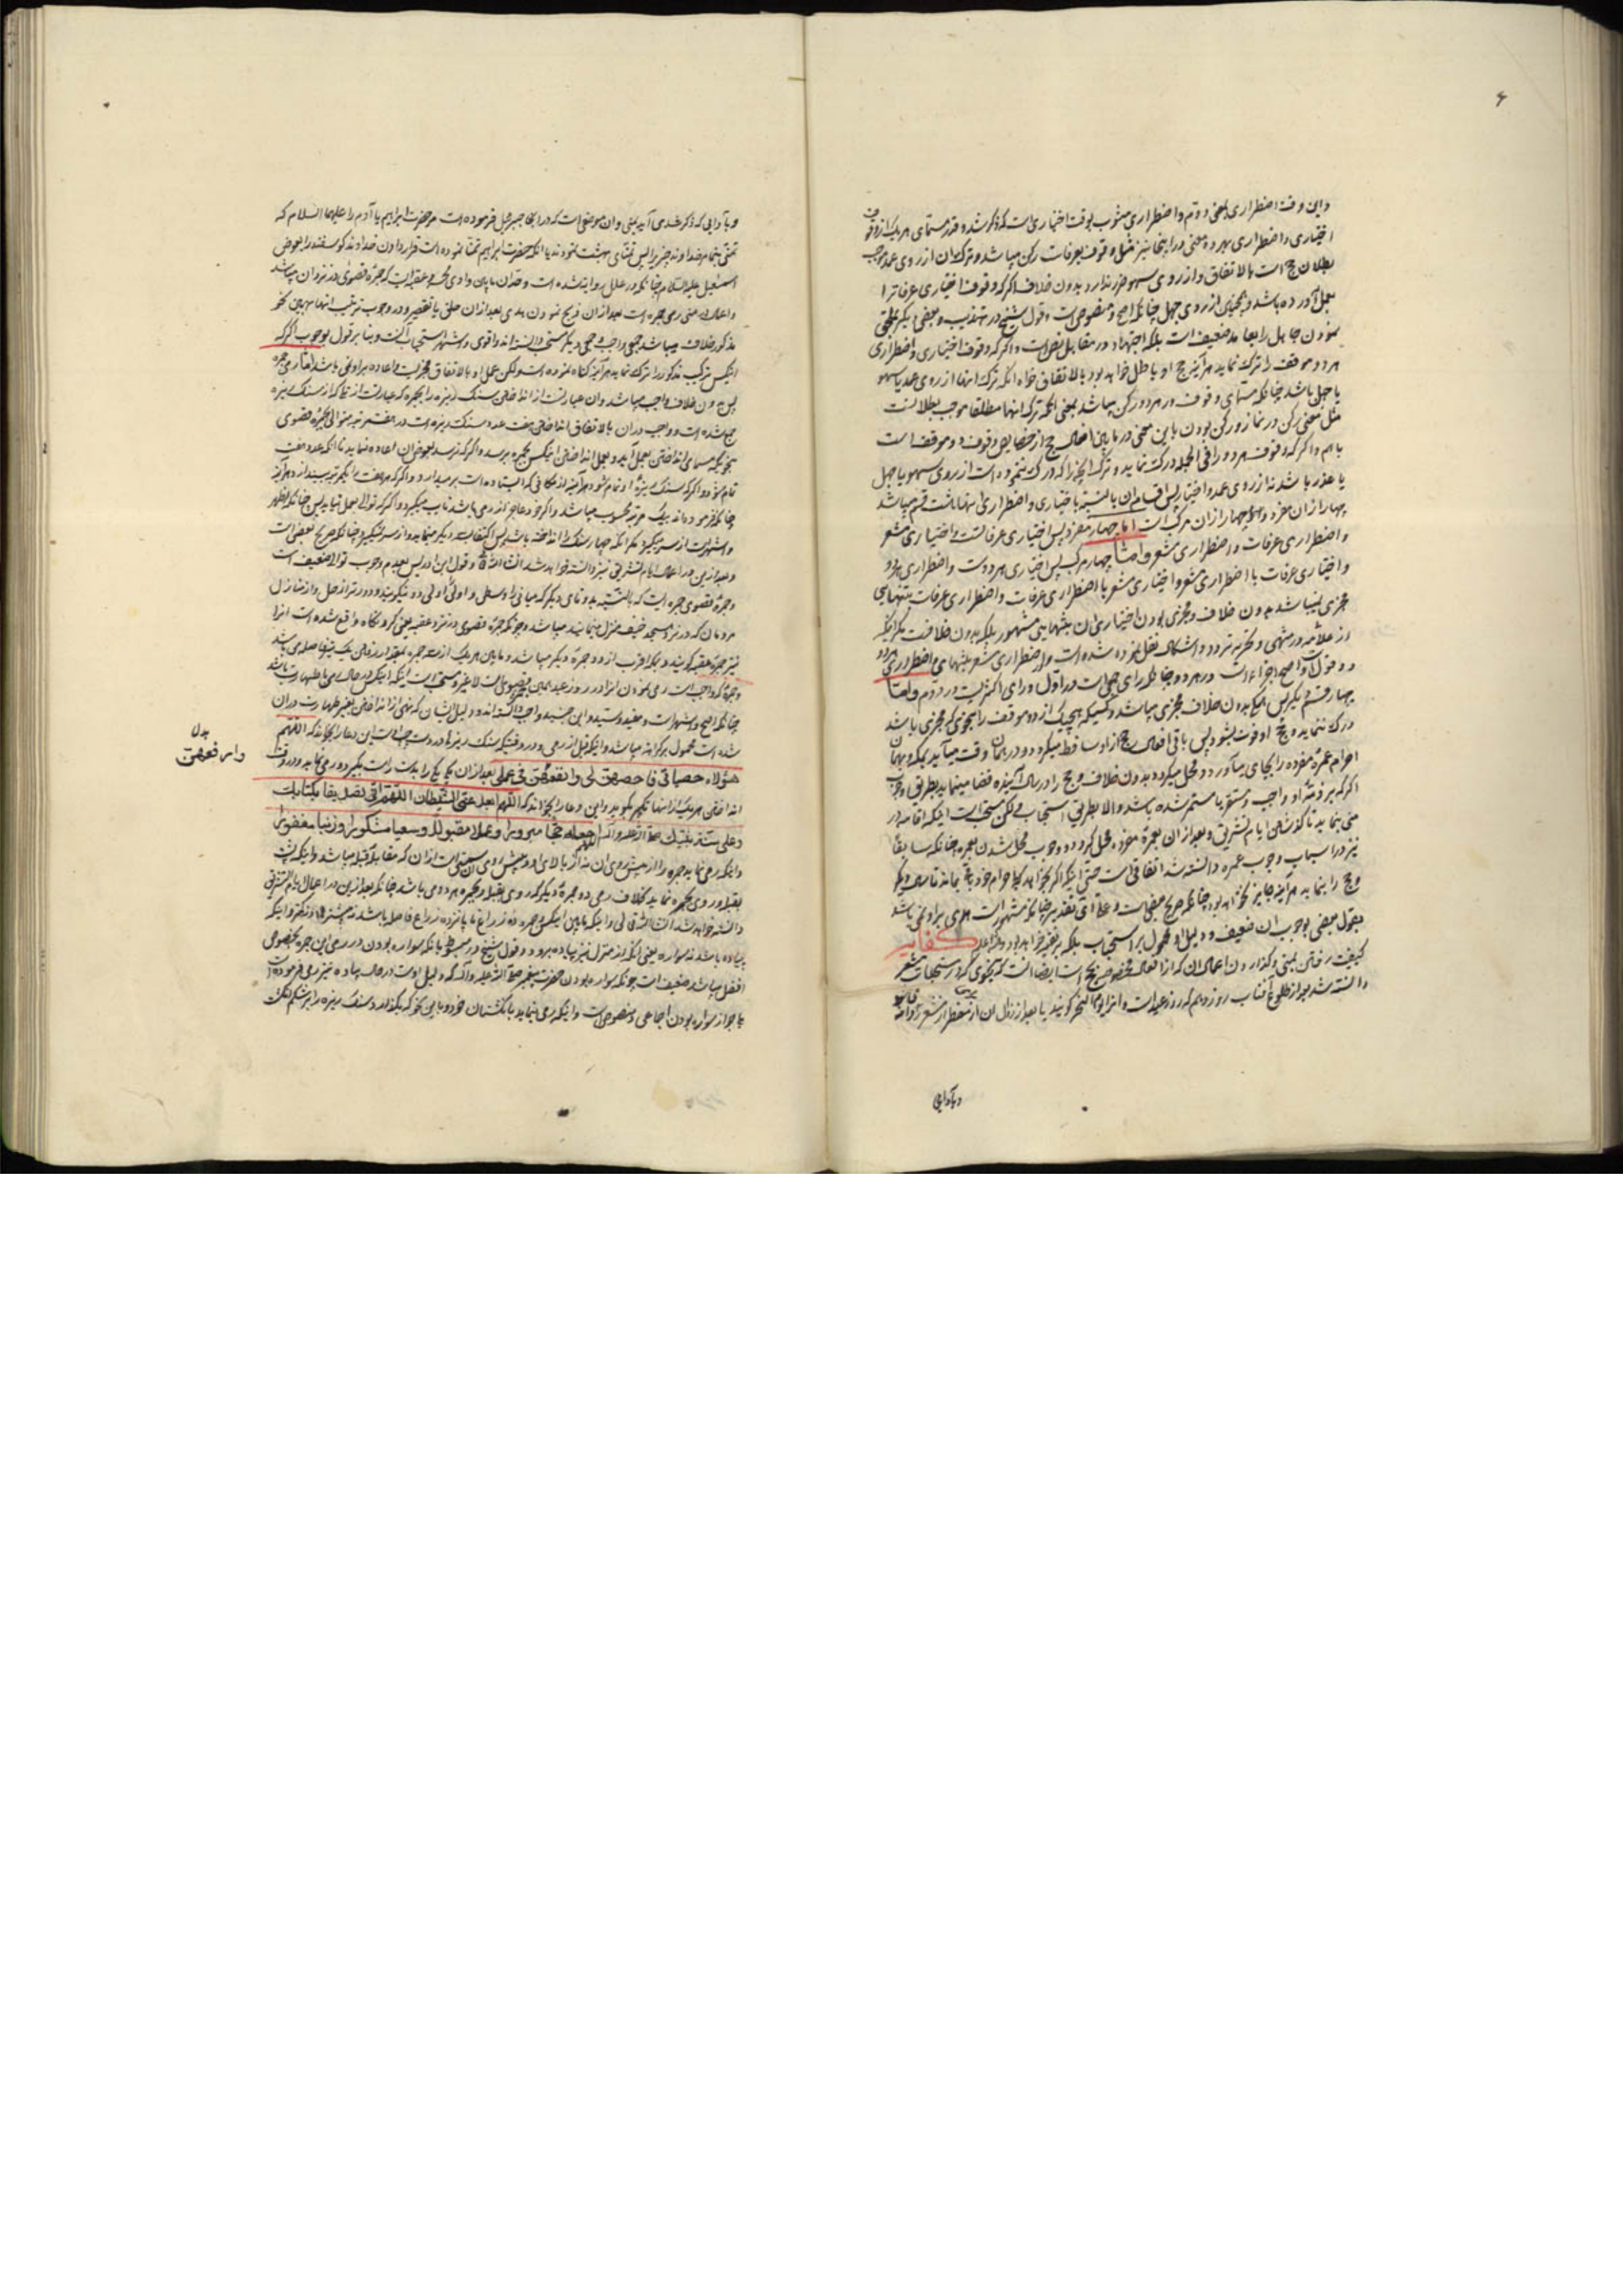 واین وقت اضطراری بمعنی دوم واضطراری مشوب بوقت اختیاری است که مذکور شد وقدر مسمای هر یک از وقوف
اختیاری واضطراری بهر دو معنی در اینجا نیز مثل وقوف بعرفات رکن میباشد وترک ان از روی عمد موجب
بطلان حج است بالاتفاق واز روی سهو ضرر ندارد بدون خلاف اکر که وقوف اختیاری عرفاترا
بعمل آورده باشد واز روی جهل چنانکه اصح ومنصوص است وقول شیخ در تهذیب وبعضی دیکر بملحق
نمودن جاهل را بعامد ضعیف است بلکه اجتهاد در مقابل نص است واکر که وقوف اختیاری واضطراری
هر دو موقف را ترک نماید هر آینه حج او باطل خواهد بود بالاتفاق خواه انکه ترک انها از روی عمد یا سهو
یا جهل باشد چنانکه مسمای وقوف در هر دو رکن میباشد بمعنی انکه ترک انها مطلقا موجب بطلانست
مثل معنی رکن در نماز ورکن بودن باین معنی در مابین افعال حج از خصایص وقوف دو موقف است
باهم واکر که وقوف هر دو را فی الجمله درک نماید وترک انچه را که درک ننموده است از روی سهو یا جهل
یا عذر باشد نه از روی عمد واختیار پس اقسام ان بالنسبة باختیاری واضطراری انها تا هشت قسم میباشد
چهار از ان مفرد وچهار از ان مرکب است اما چهار مفرد پس اختیاری عرفاتست واختیاری مشعر
واضطراری عرفات واضطراری مشعر وامّا چهار مرکب پس اختیاری هر دوست واضطراری هر دو
واختیاری عرفات با اضطراری مشعر واختیاری مشعر با اضطراری عرفات واضطراری عرفات بتنهایی
مجزی نمیباشد بدون خلاف ومجزی بودن اختیاری ان بتنهایی مشهور بلکه بدون خلافست مکر انکه
از علامه در منتهی وتحریر تردد واشکال نقل نموده شده است ودر اضطراری مشعر بتنهایی واضطراری هر دو
دو قول است واصح اجزاء است در هر دو چنانکه رای جمعی است در اوّل ورای اکثر است در دوم وامّا
چهار قسم دیکر پس همکی بدون خلاف مجزی میباشد وکسیکه هیچیک از دو موقف را بنحوی که مجزی باشد
درک ننماید حج او فوت بشود پس باقی افعال حج از او ساقط میکردد ودر همان وقت میآید بمکه وبهمان
احرام عمرهٔ مفرده را بجای میآورد ومحل میکردد بدون خلاف وحج را در سال آینده قضا مینماید بطریق وجوب
اکر که بر ذمه او واجب ومستقر یا مستمر شده باشد والا بطریق استحباب ولکن مستحب است اینکه اقامه در
منی نماید تا کذشتن ایام تشریق وبعد از ان بعمرهٔ مفرده محل کردد ووجوب محل شدن بعمره چنانکه سابقا
نیز در اسباب وجوب عمره دانسته شد اتفاقی است حتی اینکه اکر بخواهد که با حرام خود باقی بماند تا سال دیکر
وحج را بنماید هر آینه جایز نخواهد بود چنانکه صریح بعضی است وعلی ای تقدیر چنانکه مشهور است هدی بر او نمی باشد
بقول بعضی بوجوب ان ضعیف ودلیل او محمول بر استحباب بلکه بر تقیه خواهد بود والله اعلم کفایه
کیفیت رفتن بمنی وکذاردن اعمال ان که از افعال مخصوصه حج است ایضا انست که بنحوی که در مستحبات مشعر
دانسته شد بعد از طلوع آفتاب روز دهم که روز عید است وانرا یوم النحر کویند یا بعد از زوال ان از مضطر از مشعر روانه
وبآدابی

وبآدابی که ذکر شد می آید بمنی وان موضعی است که در انجا جبرئیل فرموده است مر حضرت ابراهیم یا آدم را علیهما السلام که
تمنّی بنما مر خداوند چیزیرا پس تمنّای بهشت نمودند یا انکه حضرت ابراهیم تمنّا نموده است قرار دادن خداوند کوسفند را بعوض
اسمعیل علیه السلام چنانکه در علل روایت شده است وحد ان مابین وادی محسر وعقبه است که جمره قصوی در نزد ان میباشد
واعمال منی رمی جمره است بعد از ان ذبح نمودن هدی بعد از ان حلق یا تقصیر ودر وجوب ترتیب انها بهمین نحو
مذکور خلاف میباشد جمعی واجب وجمعی دیکر مستحب دانسته اند واقوی واشهر استحباب آنست وبنا بر قول بوجوب اکر که
انیکس ترتیب مذکور را ترک نماید هر آینه کناه نموده است ولکن عمل او بالاتفاق مجزی است واعاده بر او نمی باشد امّا رمی جمره
پس بدون خلاف واجب میباشد وان عبارتست از انداختن سنک ریزه را بجمره که عبارتست از بنائی که از سنک ریزه
جمع شده است وواجب در ان بالاتفاق انداختن هفت عدد سنک ریزه است در هفت مرتبه متوالی بجمره قصوی
بنحویکه مسمای انداختن بعمل آید وبعمل انداختن انیکس بجمره برسد واکر که نرسد بعوض ان اعاده نماید تا انکه عدد هفت
تمام شود واکر که سنک ریزهٔ او تمام شود هر آینه از مکانی که ایستاده است برمیدارد واکر که هر هفت را یکمرتبه بیندازد هر آینه
چنانکه فرموده اند بیک مرتبه محسوب میباشد واکر خود عاجز از رمی باشد نایب میکیرد واکر که توالی بعمل نیاید پس چنانکه اظهر
واشهر است از سر میکیرد مکر انکه چهار سنک را انداخته باشد پس اکتفا بسه دیکر مینماید واز سر نمیکیرد چنانکه صریح بعضی است
وبعد ازین در اعمال ایام تشریق نیز دانسته خواهد شد انشاءالله وقول ابن ادریس بعدم وجوب توالی ضعیف است
وجمرهٔ قصوی جمره است که بالنسبة بدوتای دیکر که میانی را وسطی واولی را اولی ودنیا میکویند ودورتر از حل واز منازل
مردمان که در نزد مسجد خیف منزل مینمایند میباشد وچونکه جمرهٔ قصوی در نزد عقبه یعنی کردنکاه واقع شده است انرا
نیز جمرهٔ عقبه کویند وبمکه اقرب از دو جمرهٔ دیکر میباشد ومابین هر یک از سه جمره بمقدار زدن یک تیر فاصله می باشد
وجمرهٔ که واجب است رمی نمودن انرا در روز عید همان قصوی است لا غیر ومستحب است اینکه انیکس در حال رمی باطهارت باشد
چنانکه اصح واشهر است ومفید وسید وابن جنید واجب دانسته اند ودلیل ایشان که نهی از انداختن بغیر طهارت در ان
شده است محمول بر کراهت میباشد واینکه قبل از رمی ودر وقتیکه سنک ریزها در دست چپ است این دعا را بخواند که اللّهم
هؤلاء حصیاتی فاحصهنّ لی وانفعهنّ فی عملی بعد از ان یک یک را بدست راست بکیرد ورمی نماید ودر وقت
انداختن هر یک از انها تکبیر بکوید واین دعا را بخواند که اللّهم ابعد عنی الشیطان اللّهم انی تصدیقا بکتابک
وعلی سنّة نبیّک صلی الله علیه وآله اللهم اجعله حجّا مبرورا وعملا مقبولا وسعیا مشکورا وذنبا مغفورا
واینکه رمی نماید جمره را از پیش روی ان نه از بالای او وپیش روی ان سمتی است از ان که مقابل قبله میباشد واینکه پشت
بقبله وروی بجمره نماید بخلاف رمی دو جمرهٔ دیکر که روی بقبله وجمره هر دو می باشد چنانکه بعد ازین در اعمال ایام تشریق
دانسته خواهد شد انشاءالله تعالی واینکه مابین انیکس وجمره ده ذراع تا پانزده ذراع فاصله باشد نه بیشتر ونه کمتر واینکه
پیاده باشد نه سواره یعنی انکه از منزل نیز پیاده برود وقول شیخ در مبسوط بانکه سواره بودن در رمی این جمره بخصوص
افضل میباشد ضعیف است چونکه سواره بودن حضرت پیغمبر صلی الله علیه وآله که دلیل اوست در حال پیاده نیز رمی فرموده است
با جواز سواره بودن اجماعی ومنصوص است واینکه رمی بنماید بانکشتان خود وباین نحو که بکذارد سنک ریزه را بر شکم انکشت
بدل
وارفعهنّ